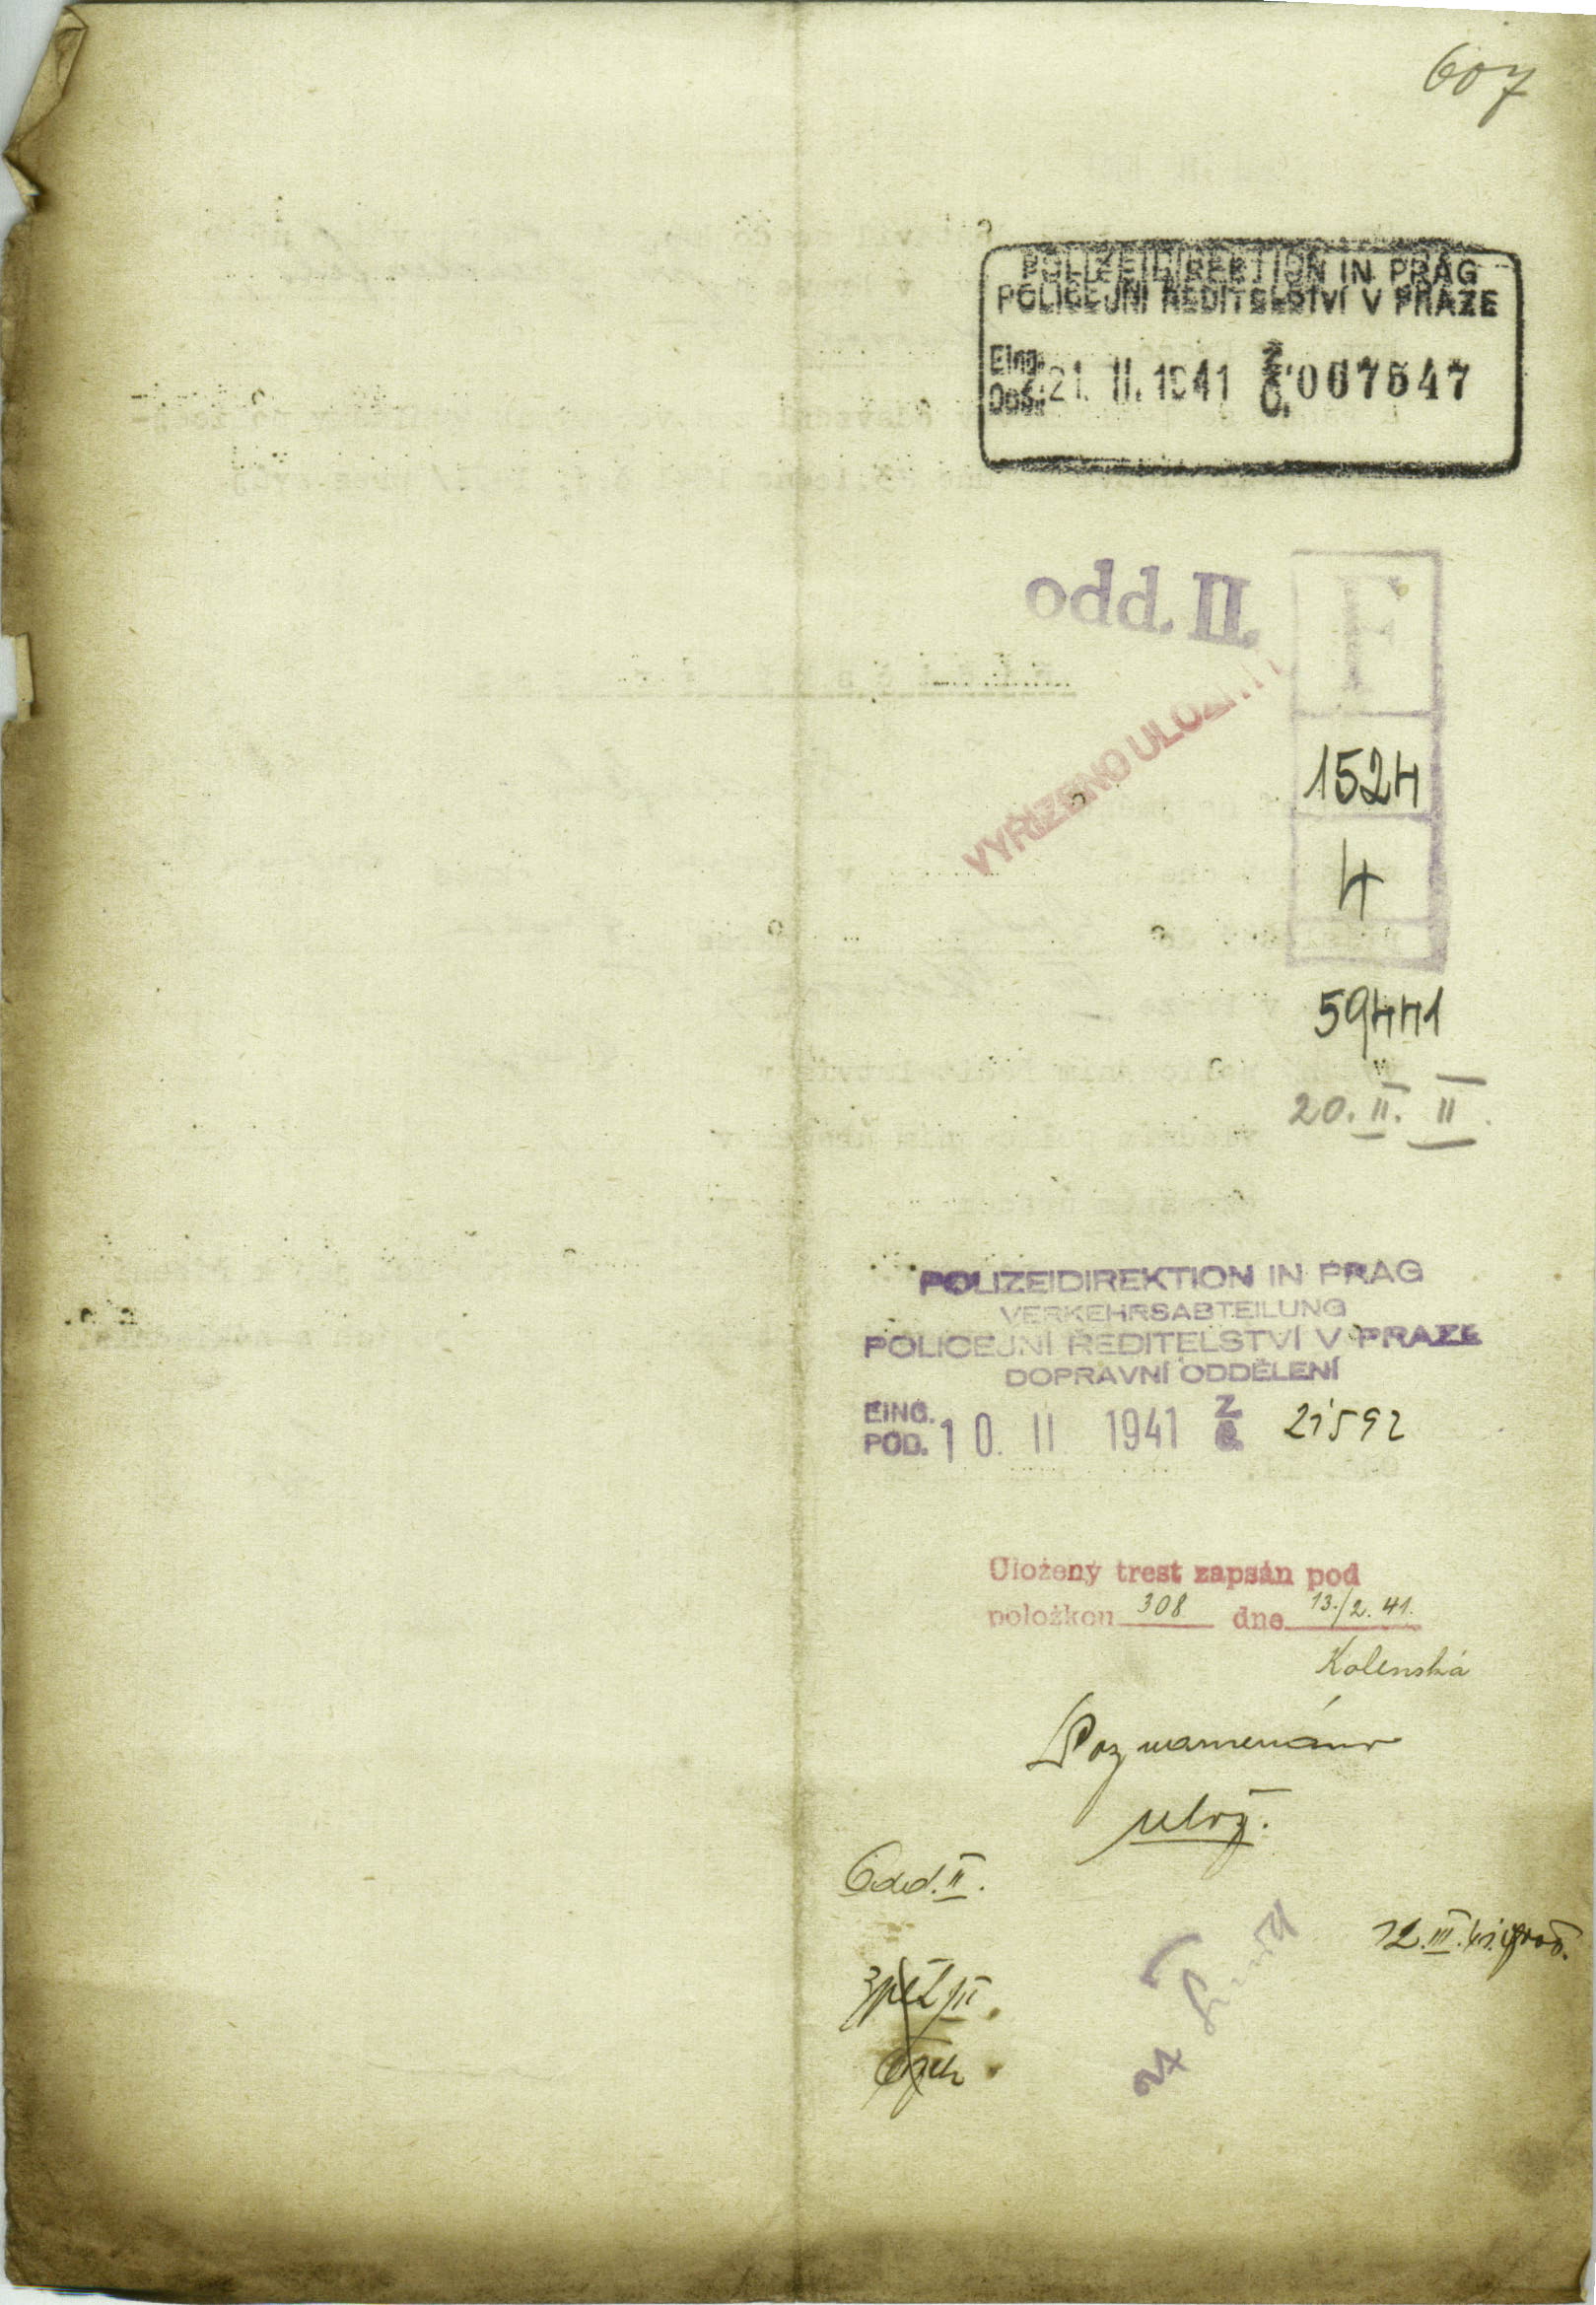 607
POLIZEIDIREKTION IN PRAG
POLICEJNÍ ŘEDITELSTVÍ V PRAZE
Eing.
Došlo 21. II. 1941 Z. Č. 067547
odd. II.
VYŘÍZENO ULOŽITI
1524
4
59441
20. II. II.
POLIZEIDIREKTION IN PRAG
VERKEHRSABTEILUNG
POLICEJNÍ ŘEDITELSTVÍ V PRAZE
DOPRAVNÍ ODDĚLENÍ
EING.
POD. 10. II 1941 Z. Č. 21592
Uložený trest zapsán pod
položkou 308 dne 13./2. 41.
Kolenská
Poznamenáno
ulož.
Odd. II.
12. III. 41.
zpět II.